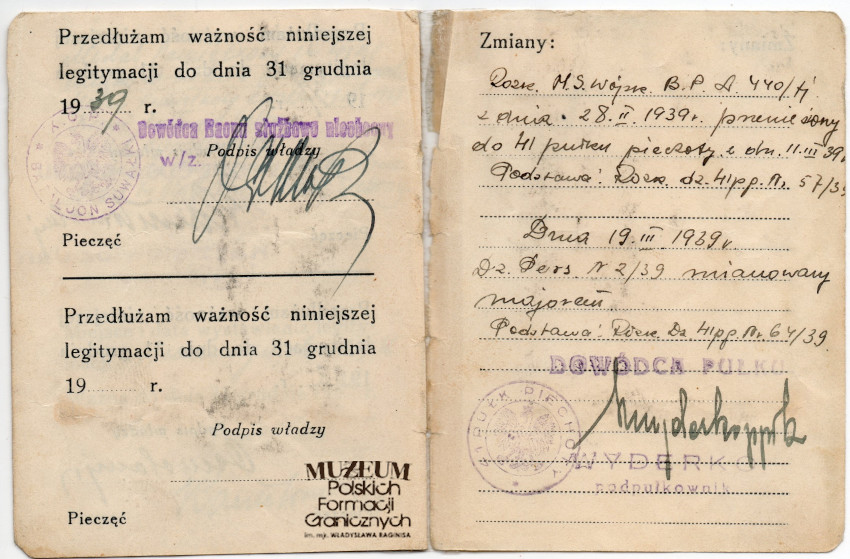 Przedłużam ważność niniejszej
legitymacji do dnia 31 grudnia
1939 r.
Dowódca Baonu służbowo nieobecny
w/z.
Podpis władzy
Pieczęć
Przedłużam ważność niniejszej
legitymacji do dnia 31 grudnia
19 r.
Podpis władzy
Pieczęć
MUZEUM
Polskich
Formacji
Granicznych
im. mjr. WŁADYSŁAWA RAGINISA
Zmiany:
Rozk. M.S.Wojsk. B.P. A. 440/tj
z dnia 28.II.1939r. przeniesiony
do 41 pułku piechoty z dn. 11.III 39r
Podstawa: Rozk. dz. 41pp. Nr. 57/39
Dnia 19.III 1939r.
Dz. Pers. N 2/39 mianowany
majorem
Podstawa: Rozk. Dz. 41pp. Nr. 64/39.
DOWÓDCA PUŁKU
WYDERKO
podpułkownik